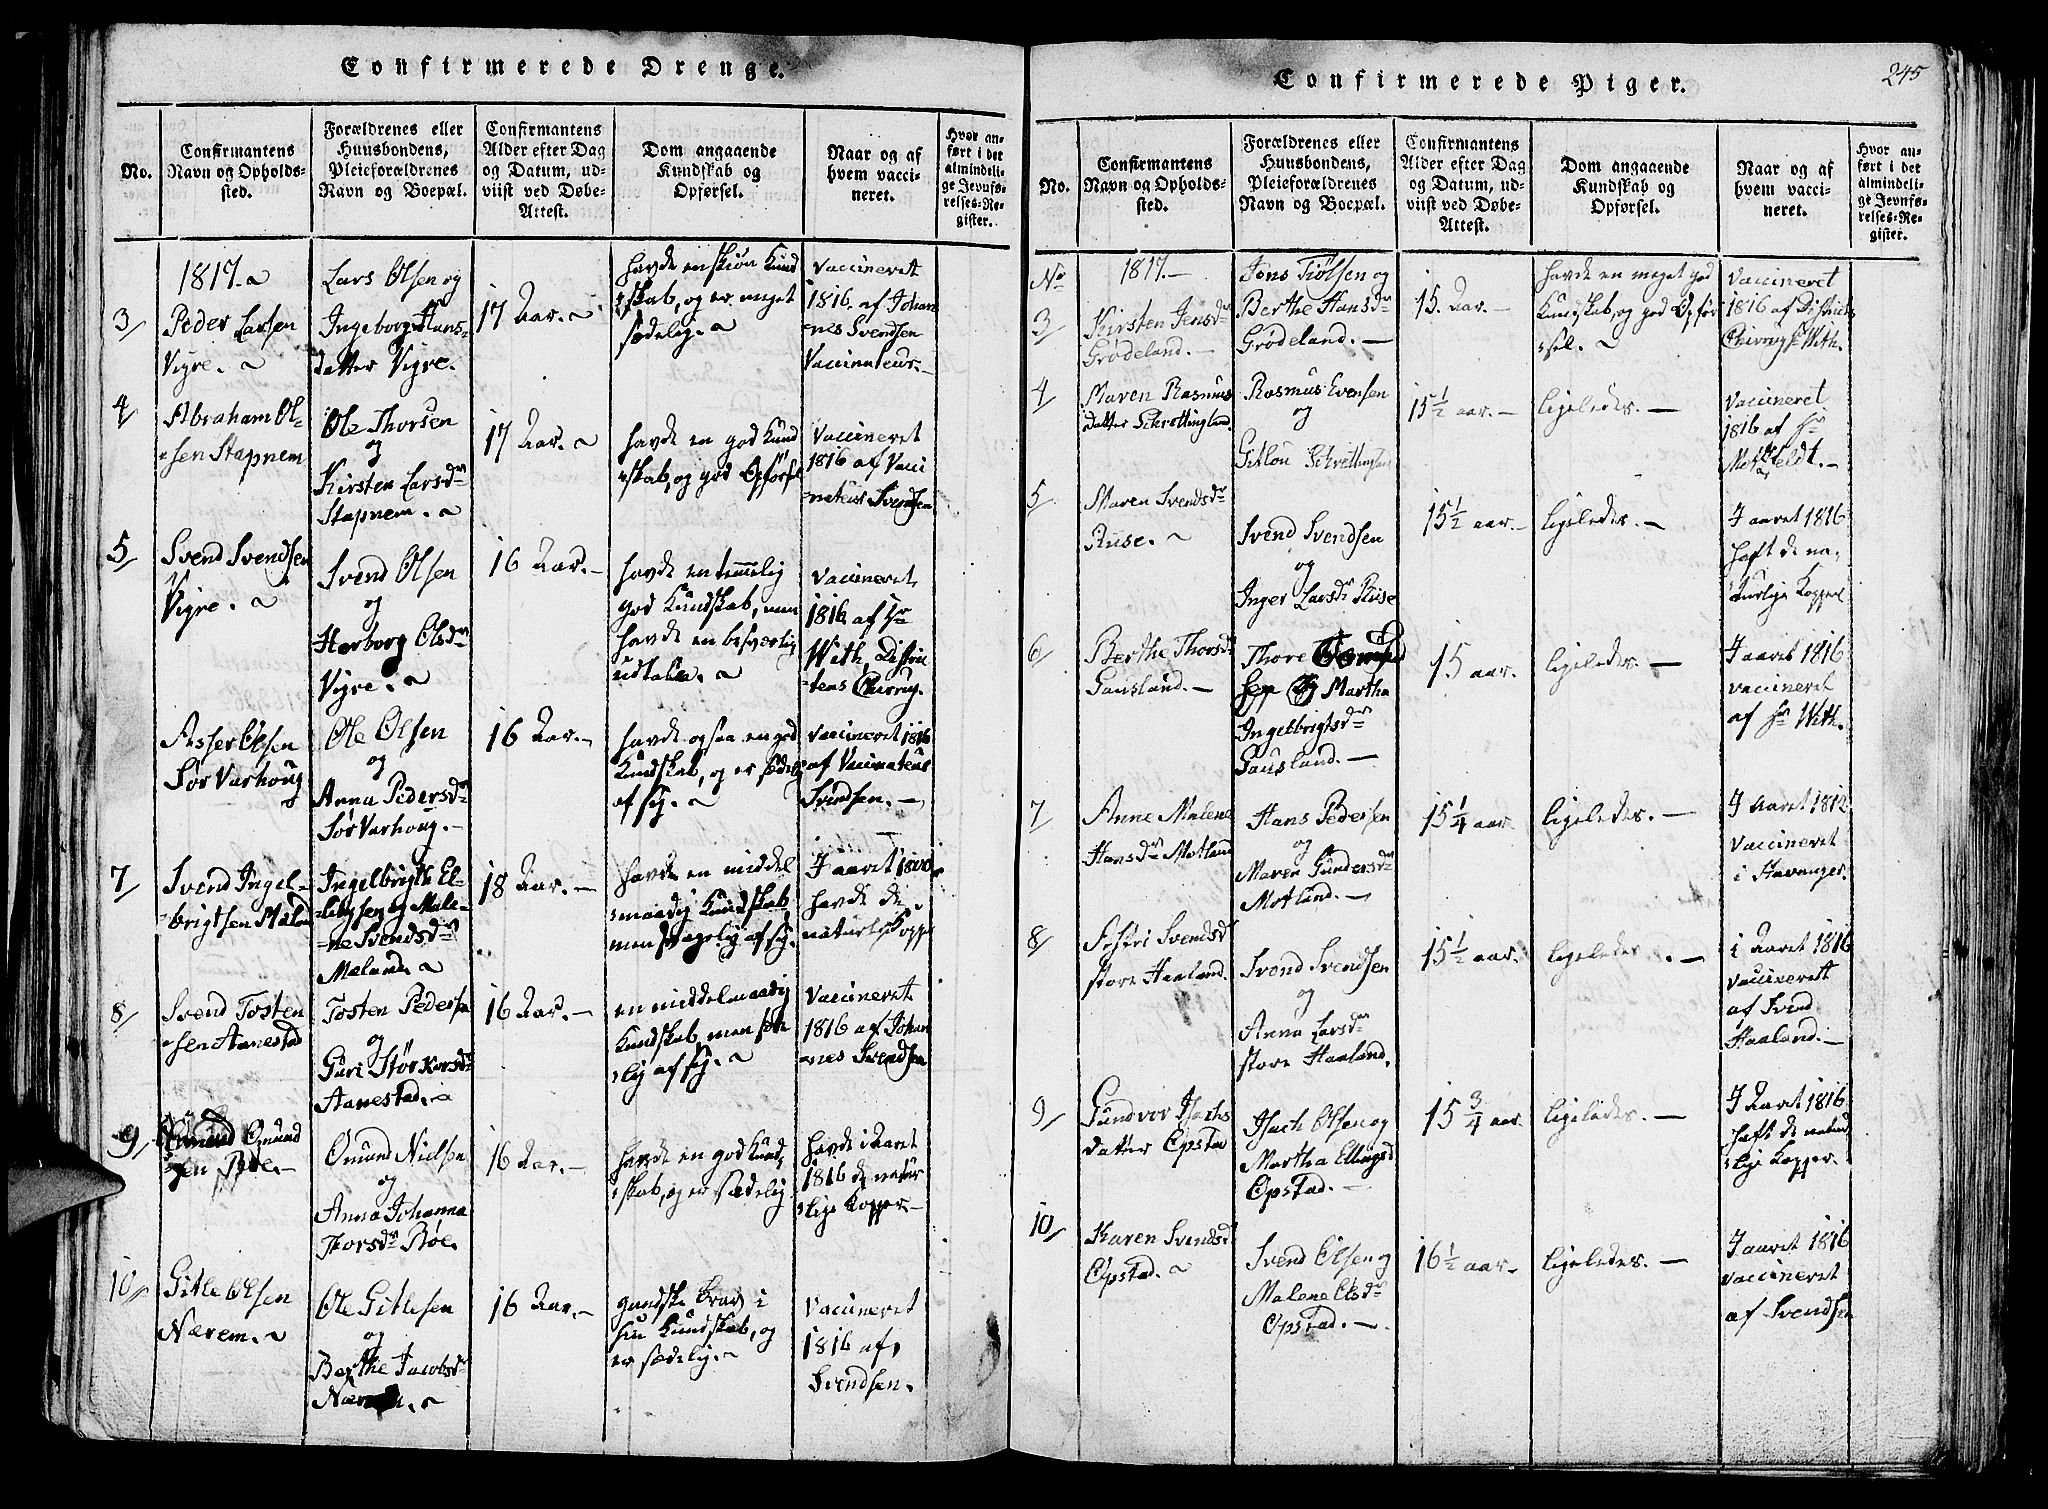 Confirmerede Drenge.
No.
Confirmantens
Navn og Opholds-
sted.
Forældrenes eller
Huusbondens,
Pleieforældrenes
Navn og Boepæl.
Confirmantens
Alder efter Dag
og Datum, ud-
viist ved Døbe-
Attest.
Dom angaaende
Kundskab og
Opførsel.
Naar og af
hvem vacci-
neret.
Hvor an-
ført i det
almindeli-
ge Jevnfø-
relses-Re-
gister.
1817.
3/
Peder Larsen
Vigre.
Lars Olsen og
Ingeborg Hans-
datter Vigre.
17 Aar.
havde en skiøn Kund
skab, og er meget
sædelig.
Vaccineret
1816. af Johan
nes Svendsen
Vaccinateur.
4/
Abraham Ol-
sen Stapnem
Ole Thorsen
og
Kirsten Larsdr
Stapnem.
17 Aar.
havde en god Kund
skab, og god Opførsel
Vaccineret
1816 af Vacci
nateur Svendsen
5/
Svend Svendsen
Vigre.
Svend Olsen
og
Herborg Olsdr
Vigre.
16 Aar.
havde en temmelig
god Kundskab, men
havde en besværlig
udtale.
Vaccineret
1816 af Hr
With, Distric
tens Chirurg.
Asser Olsen
Sør Varhoug
Ole Olsen
og
Anna Pedersdr
Sør Varhoug.
16 Aar.
havde ogsaa en god
Kundskab, og er sædelig
af sig.
Vaccineret 1816
af Vaccinateur
Svendsen.
7/
Svend Ingel-
brigtsen Mæland
Ingelbrigth El-
lingsen og Male-
ne Svendsdr
Mæland.
18 Aar.
havde en middel
maadig Kundskab
men skikkelig af sig.
I aaret 1800
havde de
naturlige Kopper
8/
Svend Tosten
sen Aanestad
Tosten Pedersen
og
Guri Størkorsdr
Aanestad.
16 Aar.
en middelmaadig
Kundskab, men sæde
lig af sig.
Vaccineret
1816 af Johan
nes Svendsen
9/
Omund Omund
sen Røe.
Omund Nielsen
og
Anna Johanna
Thorsdr Røe.
16 Aar.
havde en god Kund
skab, og er sædelig
havde i Aaret
1816 de natur
lige Kopper.
10/
Gitle Olsen
Nærem.
Ole Gitlesen
og
Berthe Jacobsdr
Nærem.
16 Aar.
gandske brav i
sin Kundskab, og
er sædelig.
Vaccineret
1816 af
Svendsen.
245
Confirmerede Piger.
No.
Confirmantens
Navn og Opholds-
sted.
Forældrenes eller
Huusbondens,
Pleieforældrenes
Navn og Boepæl.
Confirmantens
Alder efter Dag
og Datum, ud-
viist ved Døbe-
Attest.
Dom angaaende
Kundskab og
Opførsel.
Naar og af
hvem vacci-
neret.
Hvor an-
ført i det
almindeli-
ge Jevnfø-
relses-Re-
gister.
No
1817.
3/
Kirsten Jensdr
Grødeland.
Jens Tiølsen og
Berthe Hansdr
Grødeland.
15. Aar.
havde en meget god
Kundskab, og god Opfør
sel.
Vaccineret
1816 af Districts
Chirurg With.
4/
Maren Rasmus
datter Schrettingland
Rasmus Evensen
og
Gitlou Schrettingland
15 1/2 aar.
ligeledes.
Vaccineret
1816 af Hr
Motzfeldt.
5
Maren Svendsdr
Ruse.
Svend Svendsen
og
Inger Larsdr Ruse
15 1/2 aar.
ligeledes.
I aaret 1816
haft de na
turlige Kopper
6/
Berthe Thorsdr
Gausland.
Thore
og Martha
Ingelbrigtsdr
Gausland.
15 aar.
ligeledes.
I aaret 1816
vaccineret
af Hr With.
7/
Anne Malene
Hansdr Motland
Hans Pedersen
og
Maren Gundersdr
Motland.
15 1/4 aar.
ligeledes.
I Aaret 1812
vaccineret
i Stavanger.
8/
Sistri Svendsd
store Haaland.
Svend Svendsen
og
Anna Larsdr
store Haaland.
15 1/2 aar.
ligeledes.
i Aaret 1816
vaccineret
af Svend
Haaland.
9/
Gundvor Isachs
datter Opstad
Isach Olsen og
Martha Ellingsd
Opstad.
15 3/4 aar.
ligeledes.
I Aaret 1816
haft de naturl
lige Kopper.
10/
Karen Svendsd
Opstad.
Svend Olsen og
Malene Olsdr
Opstad.
16 1/2 aar.
ligeledes.
I aaret 1816
vaccineret
af Svendsen